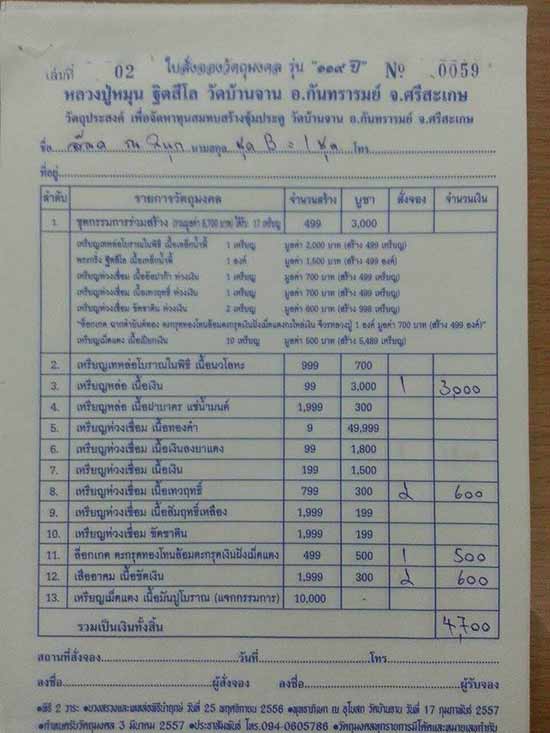 เล่มที่ 02 ใบสั่งจองวัตถุมงคล รุ่น "๑๑๙ ปี" № 0059
หลวงปู่หมุน ฐิตสีโล วัดบ้านจาน อ.กันทรารมย์ จ.ศรีสะเกษ
วัตถุประสงค์ เพื่อจัดหาทุนสมทบสร้างซุ้มประตู วัดบ้านจาน อ.กันทรารมย์ จ.ศรีสะเกษ
ชื่อ ณ นามสกุล ชุด B = 1 ชุด โทร
ที่อยู่
ลำดับ รายการวัตถุมงคล จำนวนสร้าง บูชา สั่งจอง จำนวนเงิน
1. ชุดกรรมการร่วมสร้าง (รวมมูลค่า 6,700 บาท) ได้รับ 17 เหรียญ 499 3,000
เหรียญเททองโบราณในพิธี เนื้อเหล็กน้ำพี้ 1 เหรียญ มูลค่า 2,000 บาท (สร้าง 499 เหรียญ)
พระกริ่ง ฐิตสีโล เนื้อเหล็กน้ำพี้ 1 องค์ มูลค่า 1,500 บาท (สร้าง 499 องค์)
เหรียญห่วงเชื่อม เนื้ออัลปาก้า ห่วงเงิน 1 เหรียญ มูลค่า 700 บาท (สร้าง 499 เหรียญ)
เหรียญห่วงเชื่อม เนื้อเทวฤทธิ์ ห่วงเงิน 1 เหรียญ มูลค่า 700 บาท (สร้าง 499 เหรียญ)
เหรียญห่วงเชื่อม ขัดชาติน ห่วงเงิน 2 เหรียญ มูลค่า 600 บาท (สร้าง 998 เหรียญ)
"ล็อกเกต ฉากดำบันต์ทอง ตะกรุดทองโทนล้อมตะกรุดเงินฝังเม็ดแตงกะไหล่เงิน จีวรหลวงปู่ 1 องค์ มูลค่า 700 บาท (สร้าง 499 องค์)"
เหรียญเม็ดแตง เนื้อเปียกเงิน 10 เหรียญ มูลค่า 500 บาท (สร้าง 5,489 เหรียญ)
2. เหรียญเทหล่อโบราณในพิธี เนื้อนวโลหะ 999 700
3. เหรียญหล่อ เนื้อเงิน 99 3,000 1 3,000
4. เหรียญหล่อ เนื้อฝาบาตร แช่น้ำมนต์ 1,999 300
5. เหรียญห่วงเชื่อม เนื้อทองคำ 9 49,999
6. เหรียญห่วงเชื่อม เนื้อเงินลงยาแดง 99 1,800
7. เหรียญห่วงเชื่อม เนื้อเงิน 199 1,500
8. เหรียญห่วงเชื่อม เนื้อเทวฤทธิ์ 799 300 2 600
9. เหรียญห่วงเชื่อม เนื้อสัมฤทธิ์เหลือง 1,999 199
10. เหรียญห่วงเชื่อม ขัดชาติน 1,999 199
11. ล็อกเกต ตะกรุดทองโทนล้อมตะกรุดเงินฝังเม็ดแตง 499 500 1 500
12. เสืออาคม เนื้อขัดเงิน 1,999 300 2 600
13. เหรียญเม็ดแตง เนื้อมันปูโบราณ (แจกกรรมการ) 10,000 -
รวมเป็นเงินทั้งสิ้น 4,700
สถานที่สั่งจอง วันที่ โทร
ลงชื่อ ผู้สั่งจอง ลงชื่อ ผู้รับจอง
●พิธี 2 วาระ ●บวงสรวงและเททองพิธีนำฤกษ์ วันที่ 25 พฤศจิกายน 2556 ●พุทธาภิเษก ณ อุโบสถ วัดบ้านจาน วันที่ 17 กุมภาพันธ์ 2557
●กำหนดรับวัตถุมงคล 3 มีนาคม 2557 ●ประชาสัมพันธ์ โทร.094-0605786 ●วัตถุมงคลทุกรายการมีโค้ดและหมายเลขกำกับ